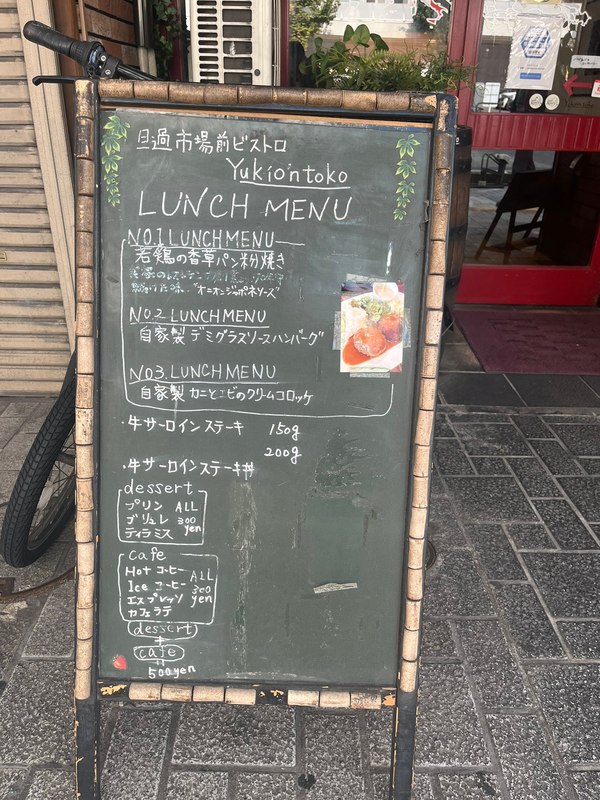 日過市場前ビストロ
Yukiontoko
LUNCH MENU
NO.1 LUNCH MENU
若鶏の香草パン粉焼き
"オニオンジャポネソース"
NO.2 LUNCH MENU
自家製 デミグラスソースハンバーグ
NO3. LUNCH MENU
自家製 カニとエビのクリームコロッケ
・牛サーロインステーキ 150g
200g
・牛サーロインステーキ丼
dessert
プリン ALL
ブリュレ 300
ティラミス yen
cafe
Hot コーヒー ALL
Ice コーヒー 300
エスプレッソ yen
カフェラテ
dessert
+
cafe
=
500yen